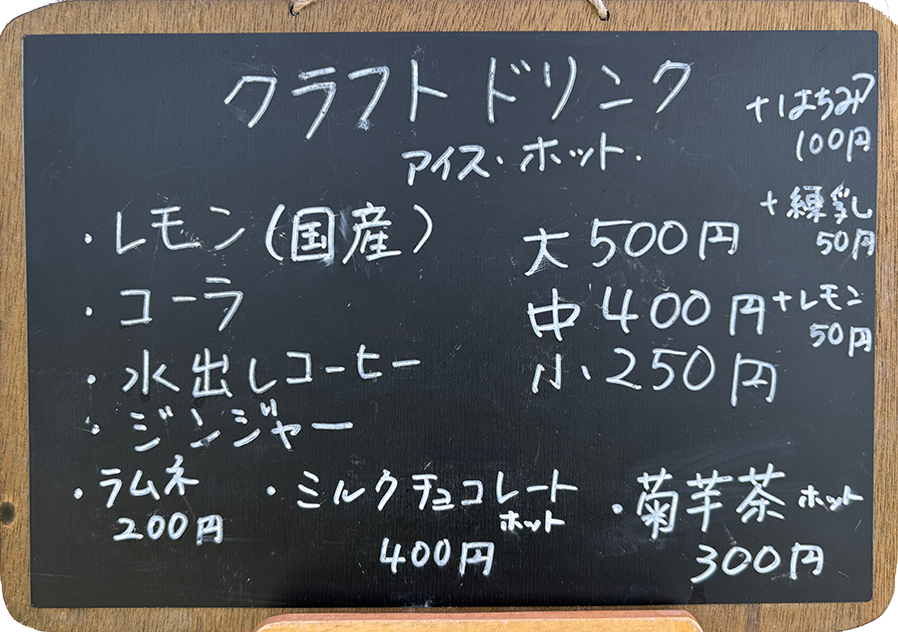 クラフトドリンク
アイス・ホット・
・レモン(国産)
・コーラ
・水出しコーヒー
・ジンジャー
大500円
中400円
小250円
+はちみつ
100円
+練乳
50円
+レモン
50円
・ラムネ
200円
・ミルクチョコレート
ホット
400円
・菊芋茶 ホット
300円